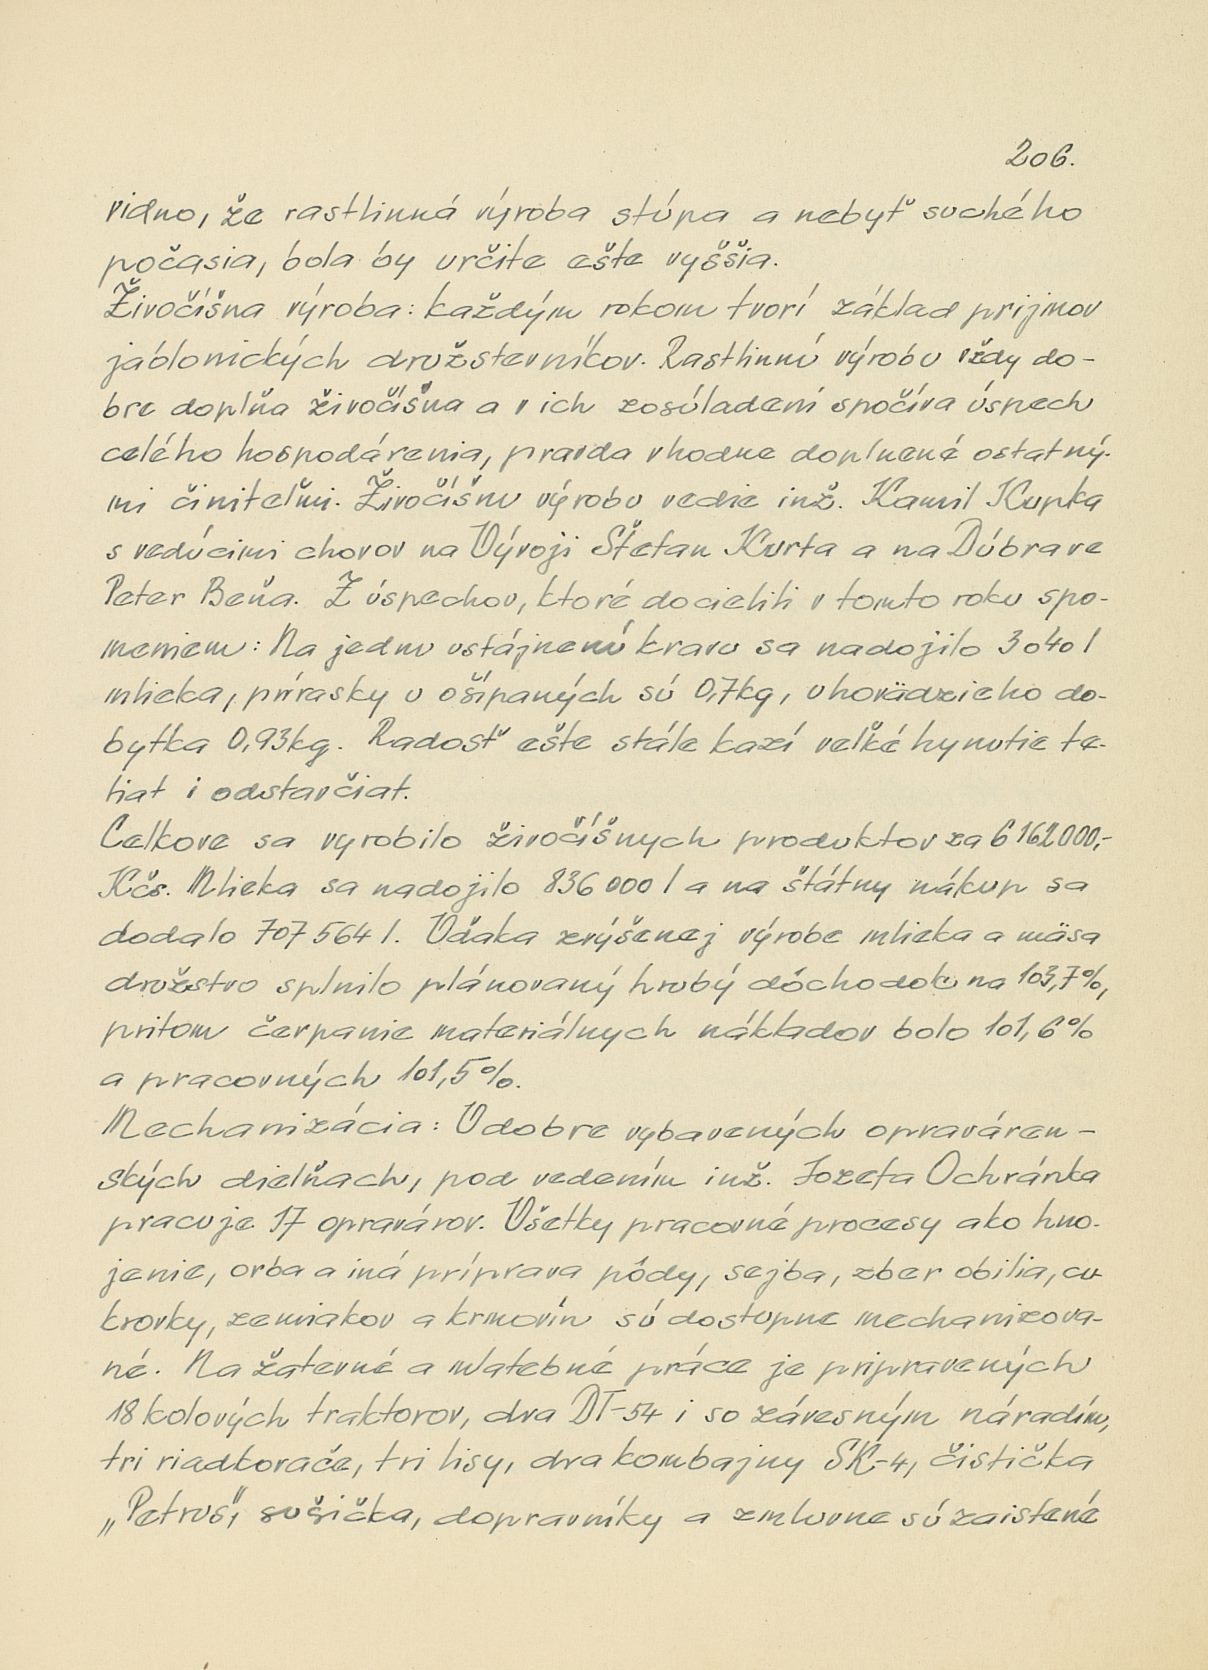 206.
vidno, že rastlinná výroba stúpa a nebyť suchého
počasia, bola by určite ešte vyššia.
Živočíšna výroba: každým rokom tvorí základ prijmov
jablonických družstevníkov. Rastlinnú výrobu vždy do-
bre doplňa živočíšna a v ich zosúladení spočíva úspech
celého hospodárenia, pravda vhodne doplnené ostatný-
mi činiteľmi. Živočíšnu výrobu vedie inž. Kamil Kupka
s vedúcimi chovov na Vývoji Štefan Kurta a na Dúbrave
Peter Beňa. Z úspechov, ktoré docielili v tomto roku spo-
meniem: Na jednu ustájnenú kravu sa nadojilo 3040 l
mlieka, prírasky u ošípaných sú 0,7kg, u hovädzieho do-
bytka 0,93kg. Radosť ešte stále kazí veľké hynutie te-
liat i odstavčiat.
Celkove sa vyrobilo živočíšnych produktov za 6 162 000,-
Kčs. Mlieka sa nadojilo 836 000 l a na štátny nákup sa
dodalo 707 564 l. Vďaka zvýšenej výrobe mlieka a mäsa
družstvo splnilo plánovaný hrubý dôchodok na 103,7%,
pritom čerpanie materiálnych nákladov bolo 101,6%
a pracovných 101,5%.
Mechanizácia: V dobre vybavených opraváren-
ských dielňach, pod vedením inž. Jozefa Ochránka
pracuje 17 opravárov. Všetky pracovné procesy ako hno-
jenie, orba a iná príprava pôdy, sejba, zber obilia, cu-
krovky, zemiakov a krmovín sú dostupne mechanizova-
né. Na žatevné a mlatebné práce je pripravených
18 kolových traktorov, dva DT-54 i so závesným náradím,
tri riadkovače, tri lisy, dva kombajny SK-4, čistička
„Petrus", sušička, dopravníky a zmluvne sú zaistené